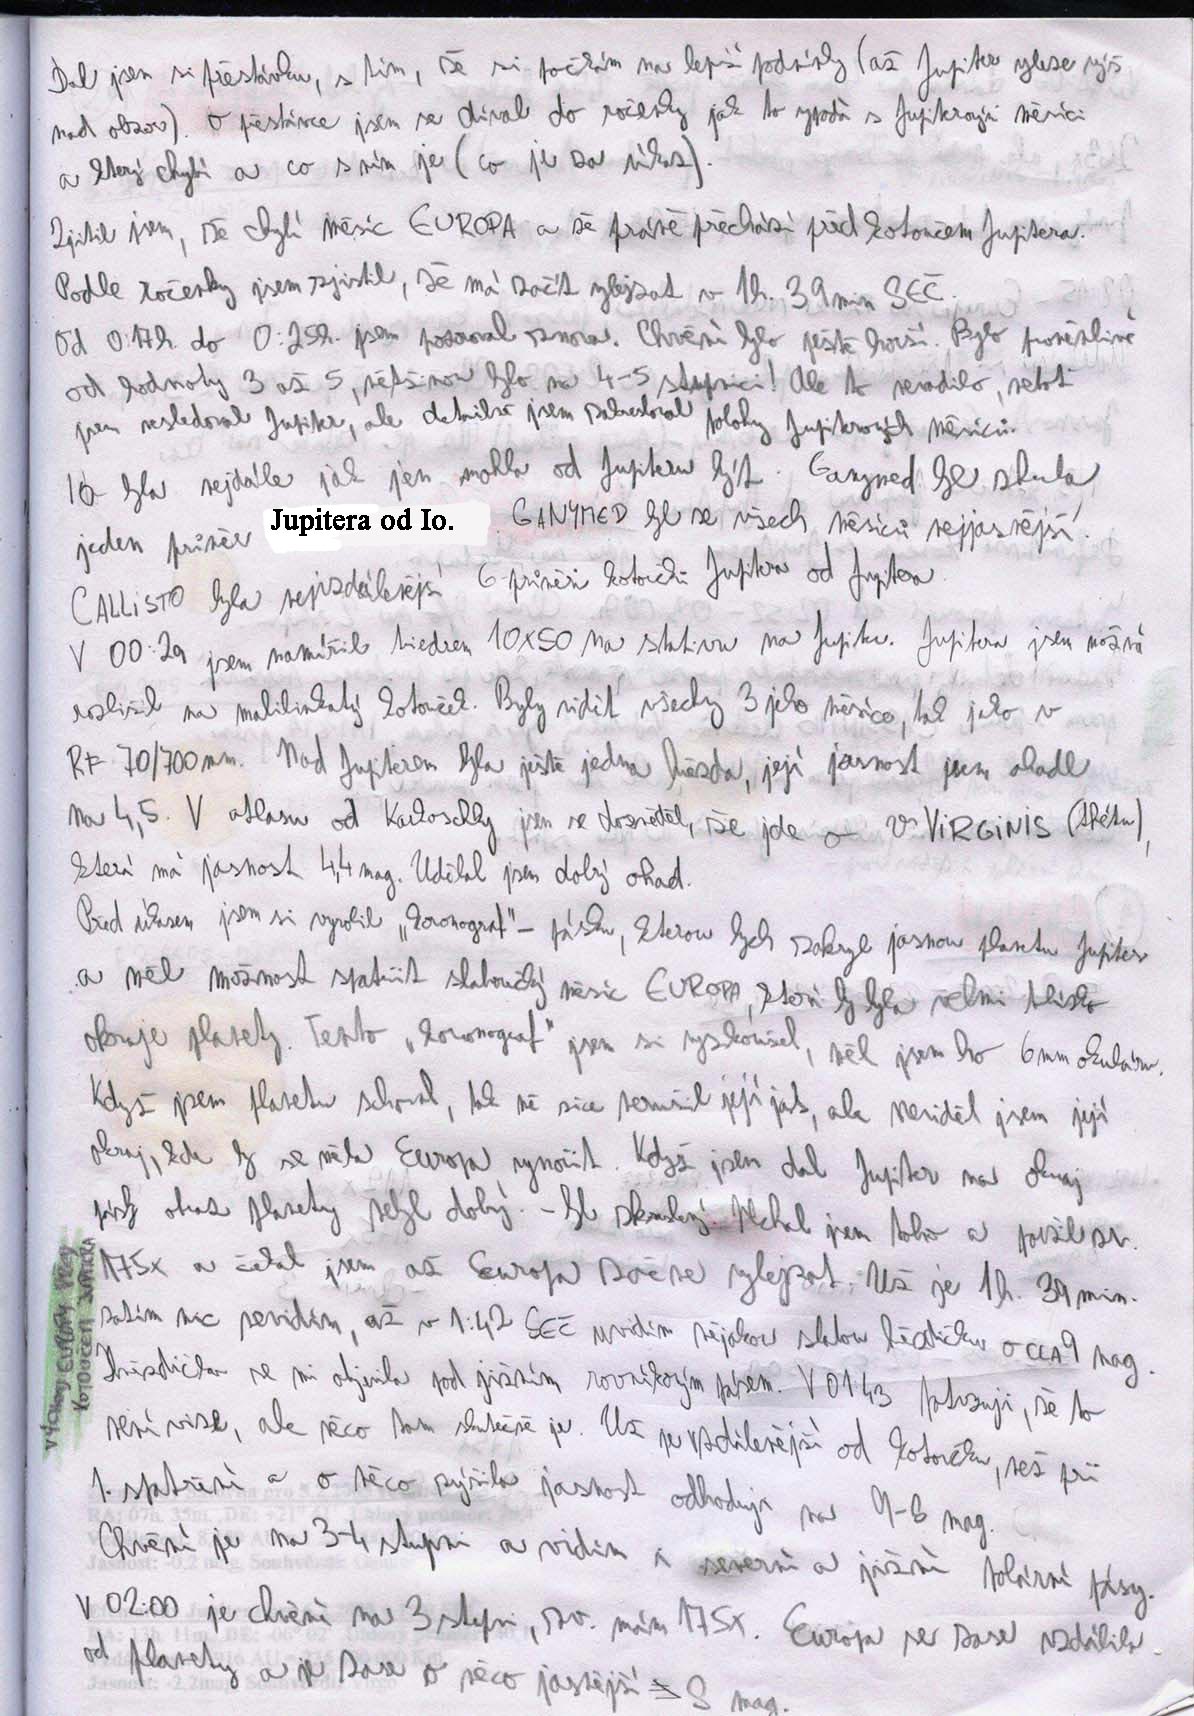 Dal jsem si přestávku, s tím, že si počkám na lepší podmínky (až Jupiter vyleze výš
nad obzor). O přestávce jsem se díval do ročenky jak to vypadá s Jupiterovými měsíci
a který chybí a co s ním je (co je za úkaz).
Zjistil jsem, že chybí měsíc EUROPA a že právě přechází před kotoučem Jupitera.
Podle ročenky jsem zjistil, že má začít vylézat v 1h. 39min SEČ.
Od 0:17h. do 0:25h. jsem pozoroval znova. Chvění bylo ještě horší. Bylo proměnlivé
od hodnoty 3 až 5, většinou bylo na 4-5 stupnici! Ale to nevadilo, neboť
jsem nesledoval Jupiter, ale detailně jsem zakresloval polohy Jupiterových měsíců.
IO byla nejdále jak jen mohla od Jupiteru být. Ganymed byl zhruba
jeden průměr Jupitera od Io. GANYMED byl ze všech měsíců nejjasnější.
CALLISTO byla nejvzdálenější 6 průměrů kotoučků Jupitera od Jupitera.
V 00:29 jsem namířil triedrem 10x50 na stativu na Jupiter. Jupitera jsem možná
rozlišil na malilinkatý kotouček. Byly vidět všechny 3 jeho měsíce, tak jako v
RF 70/700mm. Nad Jupiterem byla ještě jedna hvězda, její jasnost jsem ohadl
na 4,5. V atlasu od Karkoschky jsem se dozvěděl, že jde o ϑ VIRGINIS (thétu),
která má jasnost 4,4 mag. Udělal jsem dobrý ohad.
Před úkazem jsem si vyrobil „koronograf" – pásku, kterou bych zakryl jasnou planetu Jupiter
a měl možnost spatřit slaboučký měsíc EUROPA, která by byla velmi blízko
okraje planety. Tento „koronograf" jsem si vyzkoušel, měl jsem ho 6mm okuláru.
Když jsem planetu schoval, tak mě sice nerušil její jas, ale neviděl jsem její
okraj, kde by se měla Europa vynořit. Když jsem dal Jupiter na okraj
pásky obraz planety nebyl dobrý. - byl zkreslený. Nechal jsem toho a použil zv.
175x a čekal jsem až Europa začne vylézat. Už je 1h. 39 min.
zatím nic nevidím, až v 1:42 SEČ uvidím nějakou slabou hvězdičku o CCA 9 mag.
Hvězdička se mi objevila pod jižním rovníkovým pásem. V 01:43 potvrzuji, že to
není vize, ale něco tam skutečně je. Už je vzdálenější od kotoučku, než při
1. spatření a o něco zvýšila jasnost odhaduji na 9-8 mag.
Chvění je na 3-4 stupni a vidím i severní a jižní polární pásy.
V 02:00 je chvění na 3 stupni, zv. mám 175x. Europa se zase vzdálila
od planety a je zase o něco jasnější ≐ 8 mag.
VÝSTUP EUROPY PŘED
KOTOUČEM JUPITERA